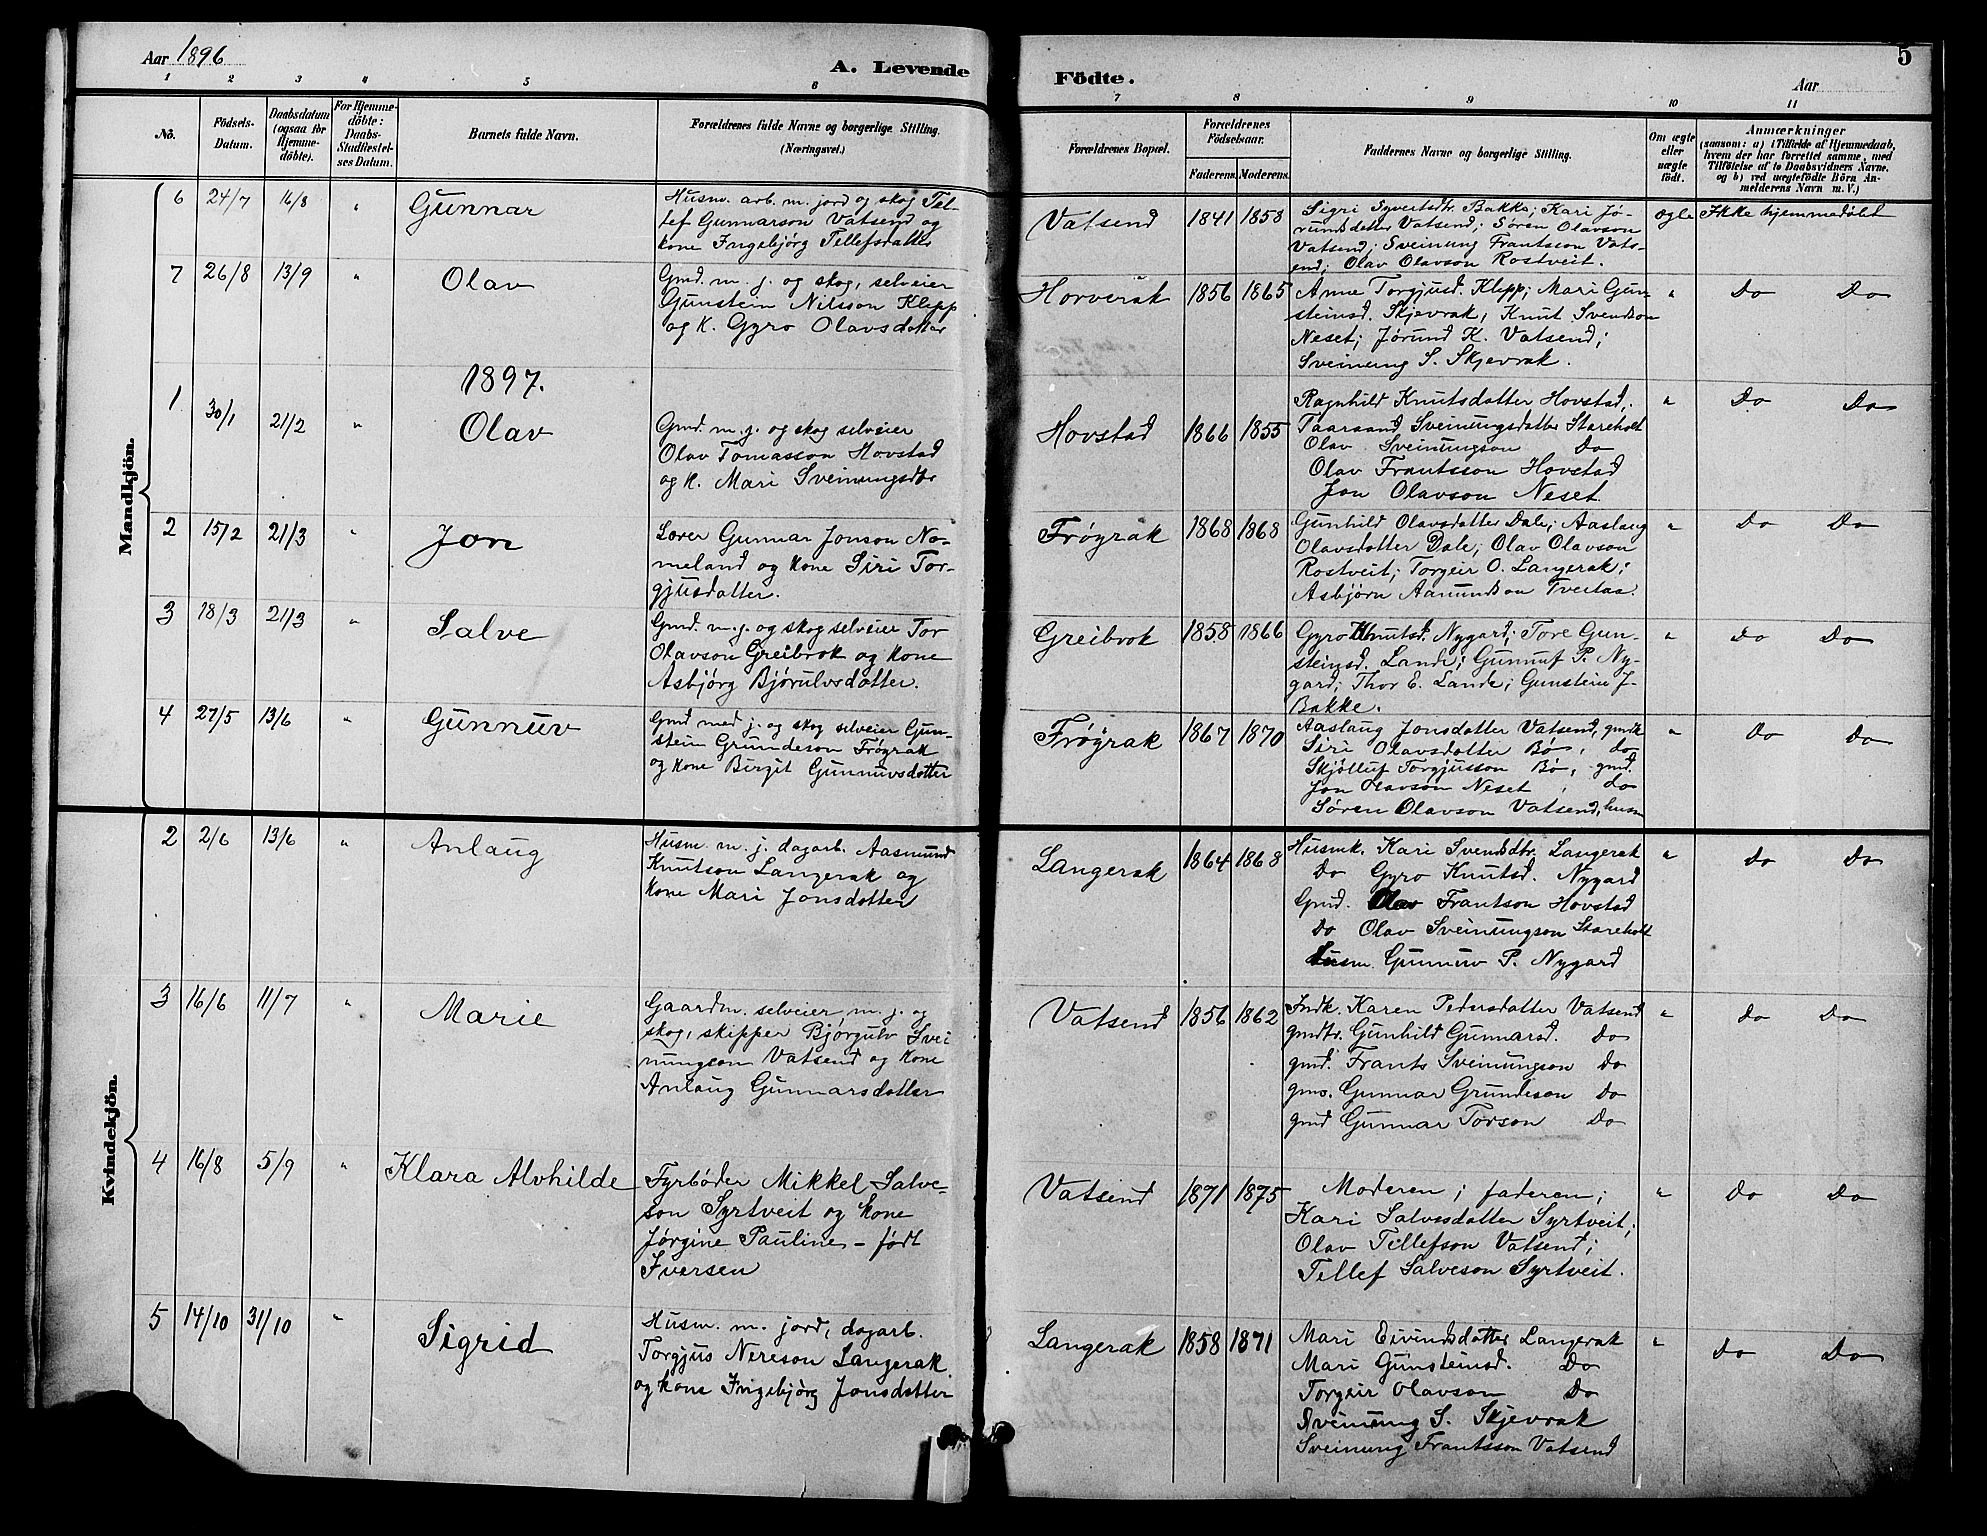 Aar 1896
A. Levende Födte.
Aar
5
1 2 3 4 5 6 7 8 9 10 11
No.
Födsels-
Datum.
Daabsdatum
(ogsaa for
Hjemme-
döbte).
For Hjemme-
döbte:
Daabs-
Stadfæstel-
ses Datum.
Barnets fulde Navn.
Forældrenes fulde Navne og borgerlige Stilling.
(Næringsvei.)
Forældrenes Bopæl.
Forældrenes
Födselsaar.
Faderens. Moderens.
Faddernes Navne og borgerlige Stilling.
Om ægte
eller
uægte
födt.
Anmærkninger
(saasom: a) i Tilfælde af Hjemmedaab,
hvem der har forrettet samme, med
Tilföielse af to Daabsvidners Navne,
og b) ved uægtefödte Börn An-
melderens Navn m. V.)
Mandkjön.
6 24/7 16/8 " Gunnar
Husm. arb. m. jord og skog Tel-
lef Gunnarson Vatsend og
kone Ingebjörg Tellefsdatter
Vatsend 1841 1858
Sigri Syvertsdtr. Bakke; Kari Jø-
rundsdatter Vatsend; Søren Olavson
Vatsend; Sveinung Frantsson Vats-
end; Olav Olavson Rostveit.
ægte Ikke hjemmedøbt
7 26/8 13/9 " Olav
Gmd. m. j. og skog, selveier
Gunstein Nilsson Klepp
og k. Gyro Olavsdatter
Horverak 1856 1865
Anne Torgjusd. Klepp; Mari Gun-
steinsd. Skjevrak; Knut Svendson
Neset; Jørund K. Vatsend;
Sveinung S. Skjevrak.
" Do Do
1897.
1 30/1 21/2 " Olav
Gmd. m. j. og skog selveier
Olav Tomasson Hovstad
og k. Mari Sveinungsdtr
Hovstad 1866 1855
Ragnhild Knutsdatter Hovstad,
Taaraand Sveinungsdatter Stareholt
Olav Sveinungson Do
Olav Frantsson Hovstad
Jon Olavson Neset
" Do Do
2 15/2 21/3 " Jon
Lærer Gunnar Jonson No-
meland og kone Siri Tor-
gjusdatter.
Frøyrak 1868 1868
Gunhild Olavsdatter Dale; Aaslaug
Olavsdatter Dale; Olav Olavson
Rostveit; Torgeir O. Langerak;
Asbjörn Aamundson Tveitaa.
" Do Do
3 18/3 21/3 " Salve
Gmd. m. j. og skog selveier Tor
Olavson Greibrok og kone
Asbjörg Bjørulvsdatter.
Greibrok 1858 1866
Gyro Knutsd. Nygard; Tore Gun-
steinsd. Lande; Gunnuf P. Ny-
gard; Thor E. Lande; Gunstein J.
Bakke.
" Do Do
4 27/5 13/6 " Gunnuv
Gmd med j. og skog selveier Gun-
stein Grundeson Frøyrak
og kone Birgit Gunnuvsdatter
Frøyrak 1867 1870
Aaslaug Jonsdatter Vatsend, gmdk
Siri Olavsdatter Bø, do
Skjölluf Torgjusson Bø, gmd.
Jon Olavson Neset, do
Søren Olavson Vatsend, husm
" Do Do
Kvindekjön.
2 2/6 13/6 " Anlaug
Husm m. j. dagarb. Aasmund
Knutson Langerak og
kone Mari Jonsdatter
Langerak 1864 1868
Husmk. Kari Svendsdtr. Langerak
Do Gyro Knutsd. Nygard
Gmd. Olav Frantson Hovstad
Do Olav Sveinungson Stareholt
Husm. Gunnuv P. Nygard
" Do Do
3 16/6 11/7 " Marie
Gaardm. selveier, m. j. og
skog, skipper Bjørgulv Svei
nungson Vatsend og kone
Anlaug Gunnarsdatter
Vatsend 1856 1862
Indk. Karen Pedersdatter Vatsend
gmdtr. Gunhild Gunnarsd. Do
gmd. Frants Sveinungson Do
gms. Gunnar Grundeson Do
gmd Gunnar Torson Do
" Do Do
4 16/8 5/9 " Klara Alvhilde
Fyrbøder Mikkel Salve-
son Syrtveit og kone
Jørgine Pauline - født
Iversen
Vatsend 1871 1875
Moderen; faderen;
Kari Salvesdatter Syrtveit;
Olav Tellefson Vatsend;
Tellef Salveson Syrtveit.
" Do Do
5 14/10 31/10 " Sigrid
Husm. m. jord, dagarb.
Torgjus Nereson Langerak
og kone Ingebjørg Jonsdatter
Langerak 1858 1871
Mari Eivindsdatter Langerak
Mari Gunsteinsd. Do
Torgeir Olavson Do
Sveinung S. Skjevrak
Sveinung Frantsson Vatsend
" Do Do